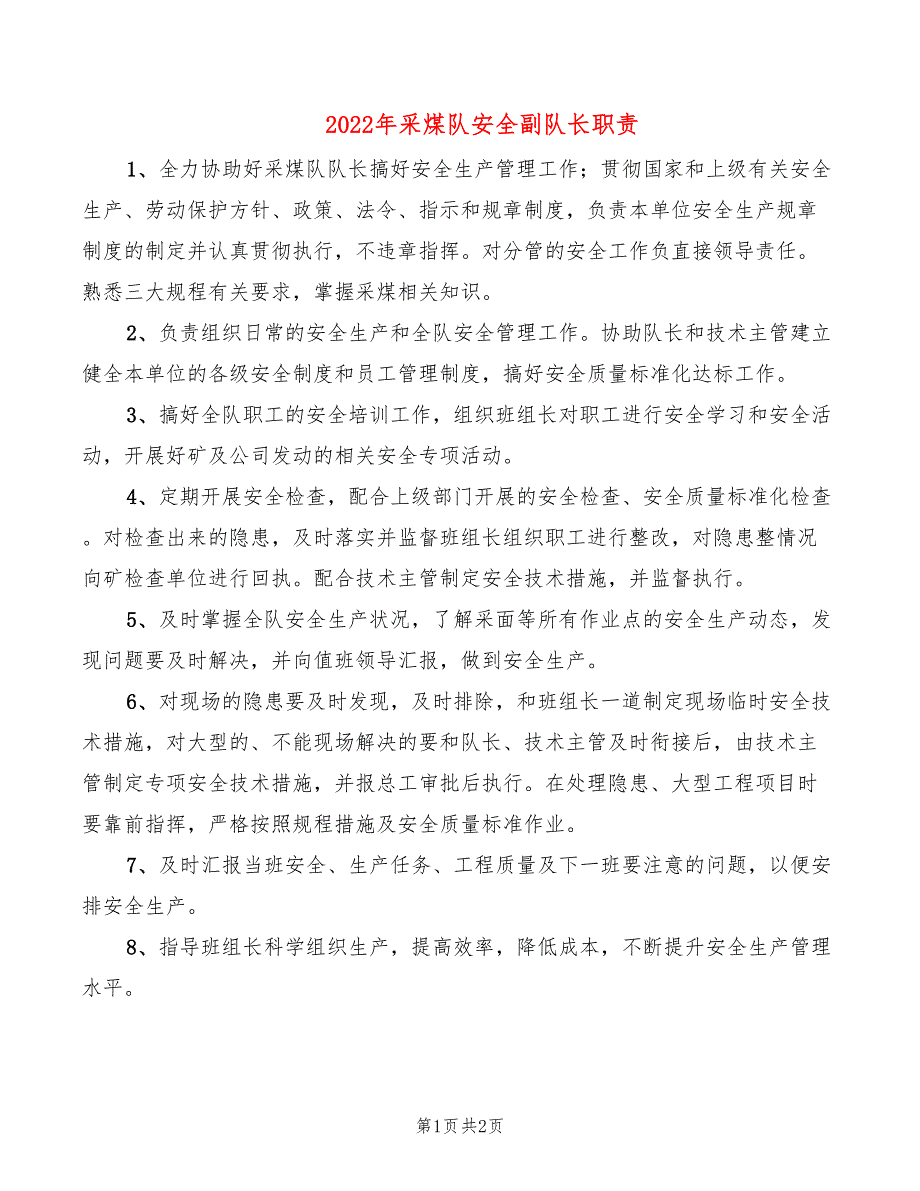 2022年采煤队安全副队长职责
1、全力协助好采煤队队长搞好安全生产管理工作；贯彻国家和上级有关安全
生产、劳动保护方针、政策、法令、指示和规章制度，负责本单位安全生产规章
制度的制定并认真贯彻执行，不违章指挥。对分管的安全工作负直接领导责任。
熟悉三大规程有关要求，掌握采煤相关知识。
2、负责组织日常的安全生产和全队安全管理工作。协助队长和技术主管建立
健全本单位的各级安全制度和员工管理制度，搞好安全质量标准化达标工作。
3、搞好全队职工的安全培训工作，组织班组长对职工进行安全学习和安全活
动，开展好矿及公司发动的相关安全专项活动。
4、定期开展安全检查，配合上级部门开展的安全检查、安全质量标准化检查
。对检查出来的隐患，及时落实并监督班组长组织职工进行整改，对隐患整情况
向矿检查单位进行回执。配合技术主管制定安全技术措施，并监督执行。
5、及时掌握全队安全生产状况，了解采面等所有作业点的安全生产动态，发
现问题要及时解决，并向值班领导汇报，做到安全生产。
6、对现场的隐患要及时发现，及时排除，和班组长一道制定现场临时安全技
术措施，对大型的、不能现场解决的要和队长、技术主管及时衔接后，由技术主
管制定专项安全技术措施，并报总工审批后执行。在处理隐患、大型工程项目时
要靠前指挥，严格按照规程措施及安全质量标准作业。
7、及时汇报当班安全、生产任务、工程质量及下一班要注意的问题，以便安
排安全生产。
8、指导班组长科学组织生产，提高效率，降低成本，不断提升安全生产管理
水平。
第1页共2页